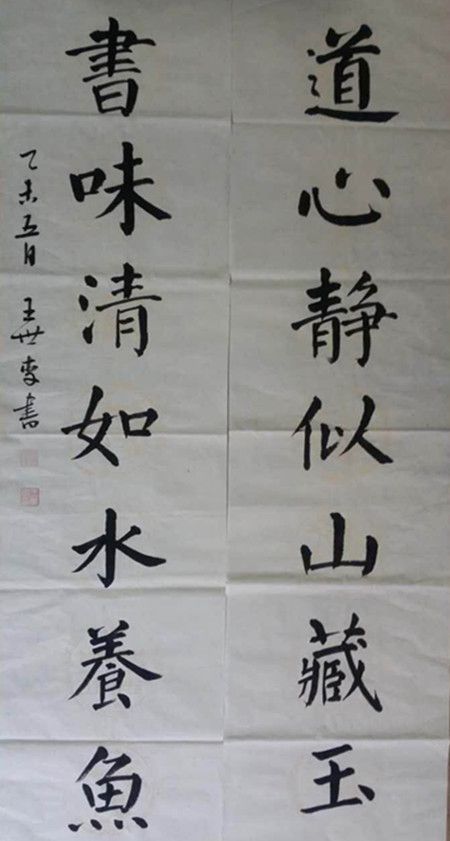 道心静似山藏玉
書味清如水養魚
乙未五月 王世書